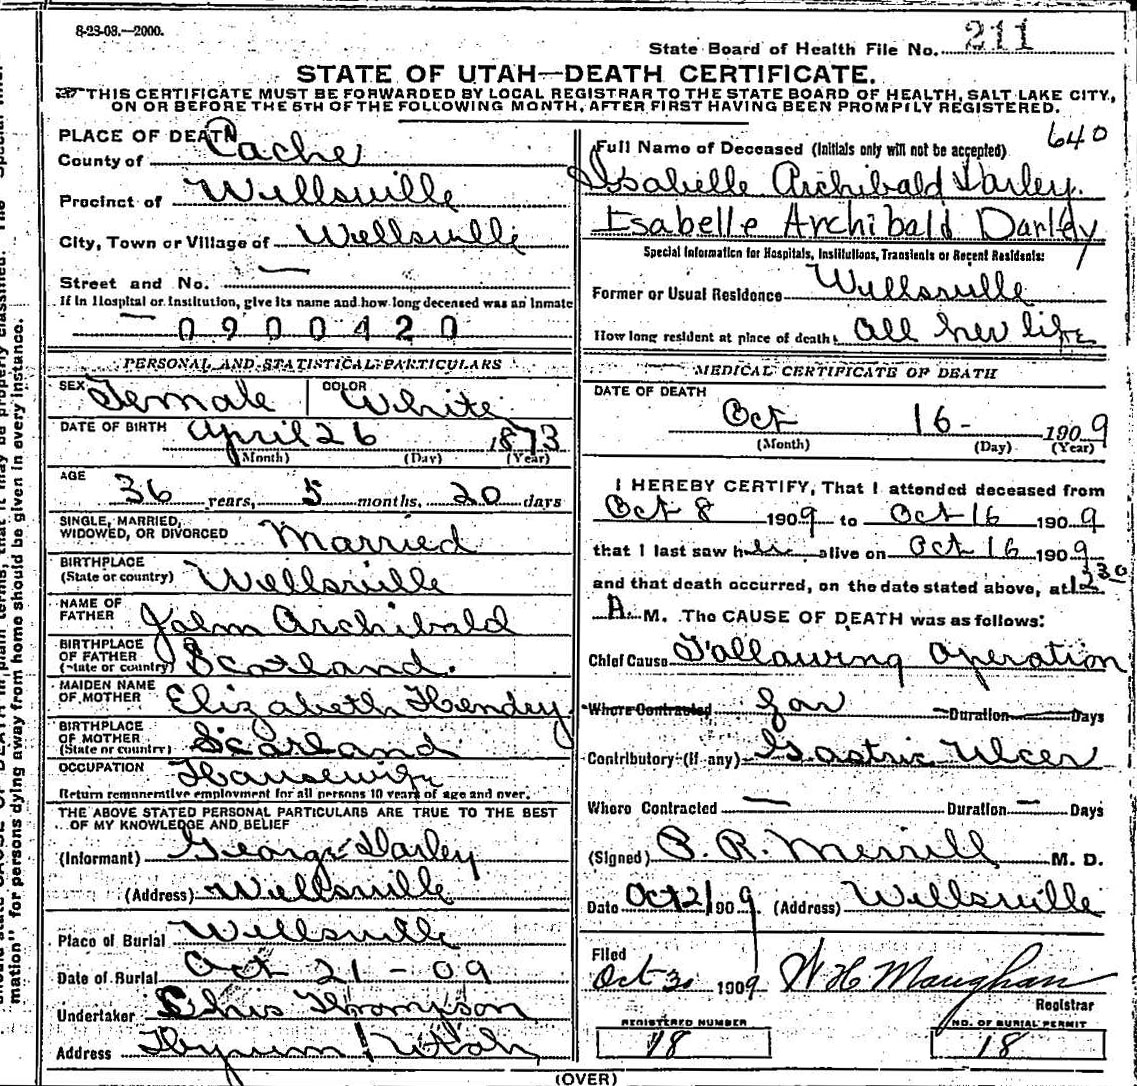 8-23-08.—2000.
State Board of Health File No. 211
STATE OF UTAH—DEATH CERTIFICATE.
THIS CERTIFICATE MUST BE FORWARDED BY LOCAL REGISTRAR TO THE STATE BOARD OF HEALTH, SALT LAKE CITY,
ON OR BEFORE THE 5TH OF THE FOLLOWING MONTH, AFTER FIRST HAVING BEEN PROMPTLY REGISTERED.
PLACE OF DEATH
County of Cache
Precinct of Wellsville
City, Town or Village of Wellsville
Street and No. —
If in Hospital or Institution, give its name and how long deceased was an Inmate
— 0900420
PERSONAL AND STATISTICAL PARTICULARS
SEX Female COLOR White
DATE OF BIRTH April 26 1873
(Month) (Day) (Year)
AGE
36 years, 5 months, 20 days
SINGLE, MARRIED,
WIDOWED, OR DIVORCED Married
BIRTHPLACE
(State or country) Wellsville
NAME OF
FATHER John Archibald
BIRTHPLACE
OF FATHER
(State or country) Scotland.
MAIDEN NAME
OF MOTHER Elizabeth Hendry
BIRTHPLACE
OF MOTHER
(State or country) Scotland
OCCUPATION Housewife
Return remunerative employment for all persons 10 years of age and over.
THE ABOVE STATED PERSONAL PARTICULARS ARE TRUE TO THE BEST
OF MY KNOWLEDGE AND BELIEF
(Informant) George Darley
(Address) Wellsville
Place of Burial Wellsville
Date of Burial Oct 21 - 09
Undertaker Thompson
Address Hyrum Utah
640
Full Name of Deceased (Initials only will not be accepted)
Isabelle Archibald Darley.
Isabelle Archibald Darley
Special Information for Hospitals, Institutions, Transients or Recent Residents:
Former or Usual Residence Wellsville
How long resident at place of death: all her life
MEDICAL CERTIFICATE OF DEATH
DATE OF DEATH
Oct 16- 1909
(Month) (Day) (Year)
I HEREBY CERTIFY, That I attended deceased from
Oct 8 1909 to Oct 16 1909
that I last saw her alive on Oct 16 1909
and that death occurred, on the date stated above, at 12 30
A. M. The CAUSE OF DEATH was as follows:
Chief Cause Following Operation
Where Contracted for Duration Days
Contributory (if any) Gastric Ulcer
Where Contracted — Duration — Days
(Signed) R. Merrill M. D.
Date Oct 21 1909. (Address) Wellsville
Filed
Oct 30 1909 W H Maughan
Registrar
REGISTERED NUMBER
18
NO. OF BURIAL PERMIT
18
(OVER)
mation" for persons dying away from home should be given in every instance.
should state CAUSE OF DEATH in plain terms, that it may be properly classified. The "Special Infor-